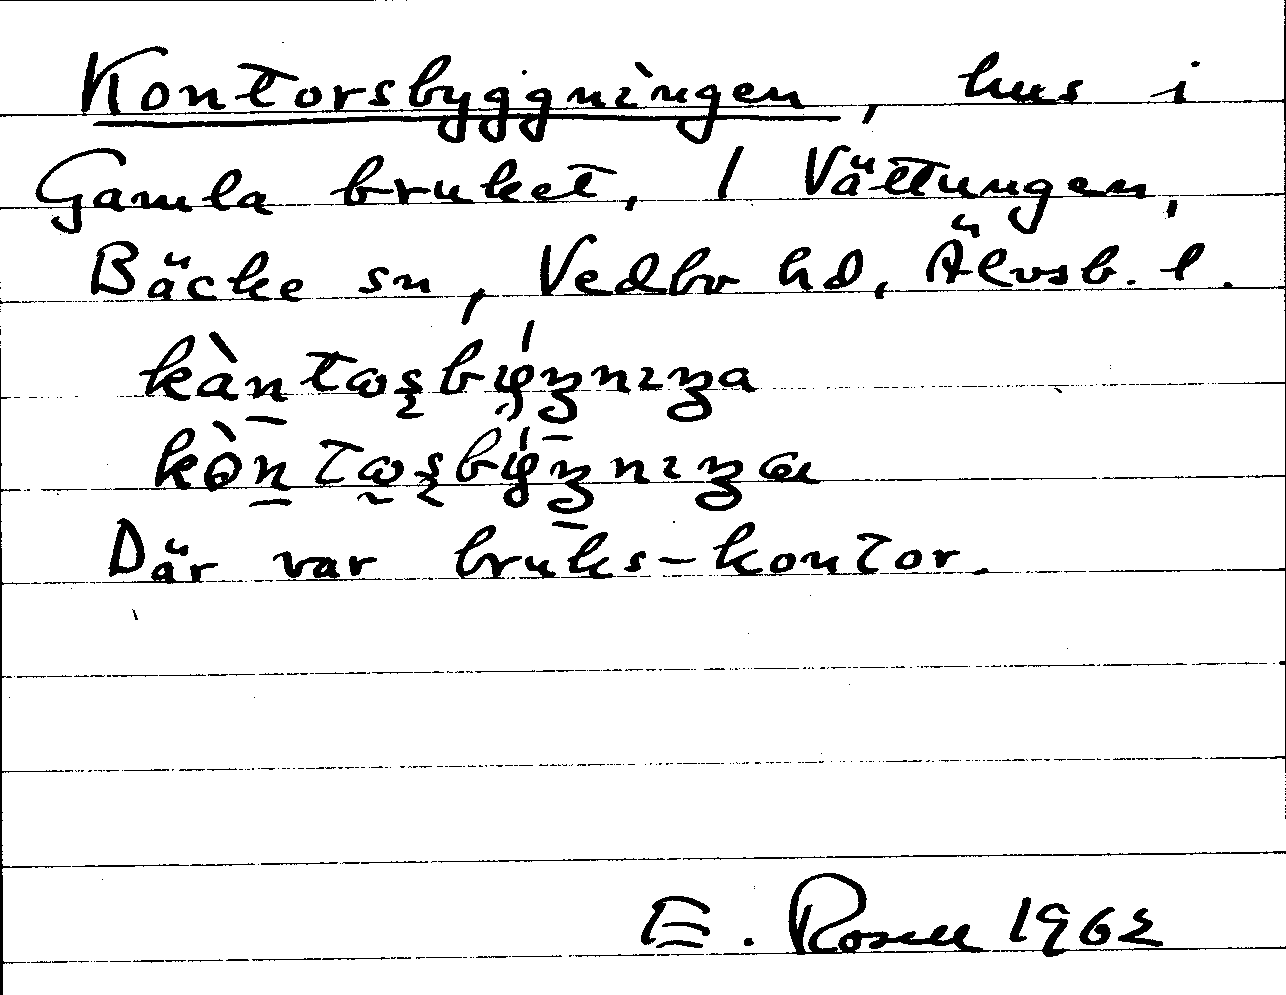 Kontorsbyggningen, hus i
Gamla bruket, 1 Vättungen,
Bäcke sn, Vedbo hd, Älvsb. l.
Där var bruks-kontor.
E. Rosell 1962